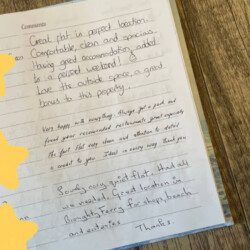 Comments
Great flat in perfect location.
Comfortable, clean and spacious.
Having good accommodation added
to a perfect weekend!
Love the outside space, a great
bonus to this property.
Very happy with everything. Always got a park and
found your recommended restaurants great especially
the fact. Flat very clean and attention to detail
a credit to you. Ideal in every way. Thank you
Lovely, cosy, quiet flat. Had all
we needed. Good location in
Broughty Ferry for shops, beach
and eateries.
Thanks.